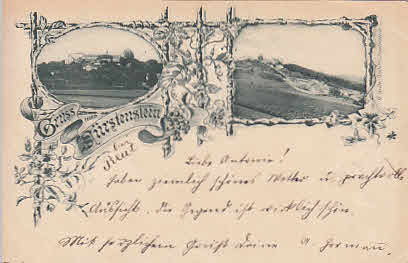 Gruss aus
Fürstenstein
Liebe Antonie!
haben ziemlich schönes Wetter u. prachtvolle
Aussicht. Die Gegend ist wirklich schön.
Mit herzlichem Gruß Deine